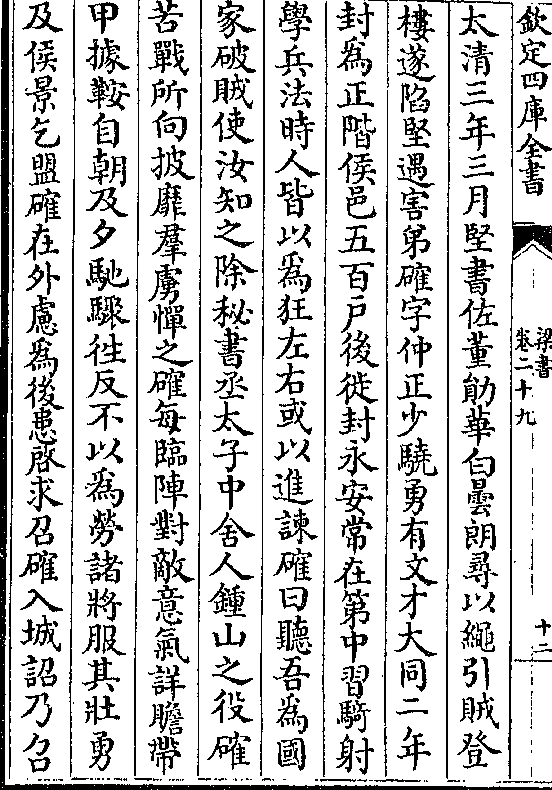 欽定四庫全書
梁書
卷二十九
十二
太清三年三月堅書佐董勛華白曇朗尋以繩引賊登
樓遂陷堅遇害弟確字仲正少驍勇有文才大同二年
封為正階侯邑五百戶後徙封永安常在第中習騎射
學兵法時人皆以為狂左右或以進諫確曰聽吾為國
家破賊使汝知之除秘書丞太子中舍人鍾山之役確
苦戰所向披靡羣虜憚之確每臨陣對敵意氣詳贍帶
甲據鞍自朝及夕馳驟徃反不以為勞諸將服其壯勇
及侯景乞盟確在外慮為後患啓求召確入城詔乃召